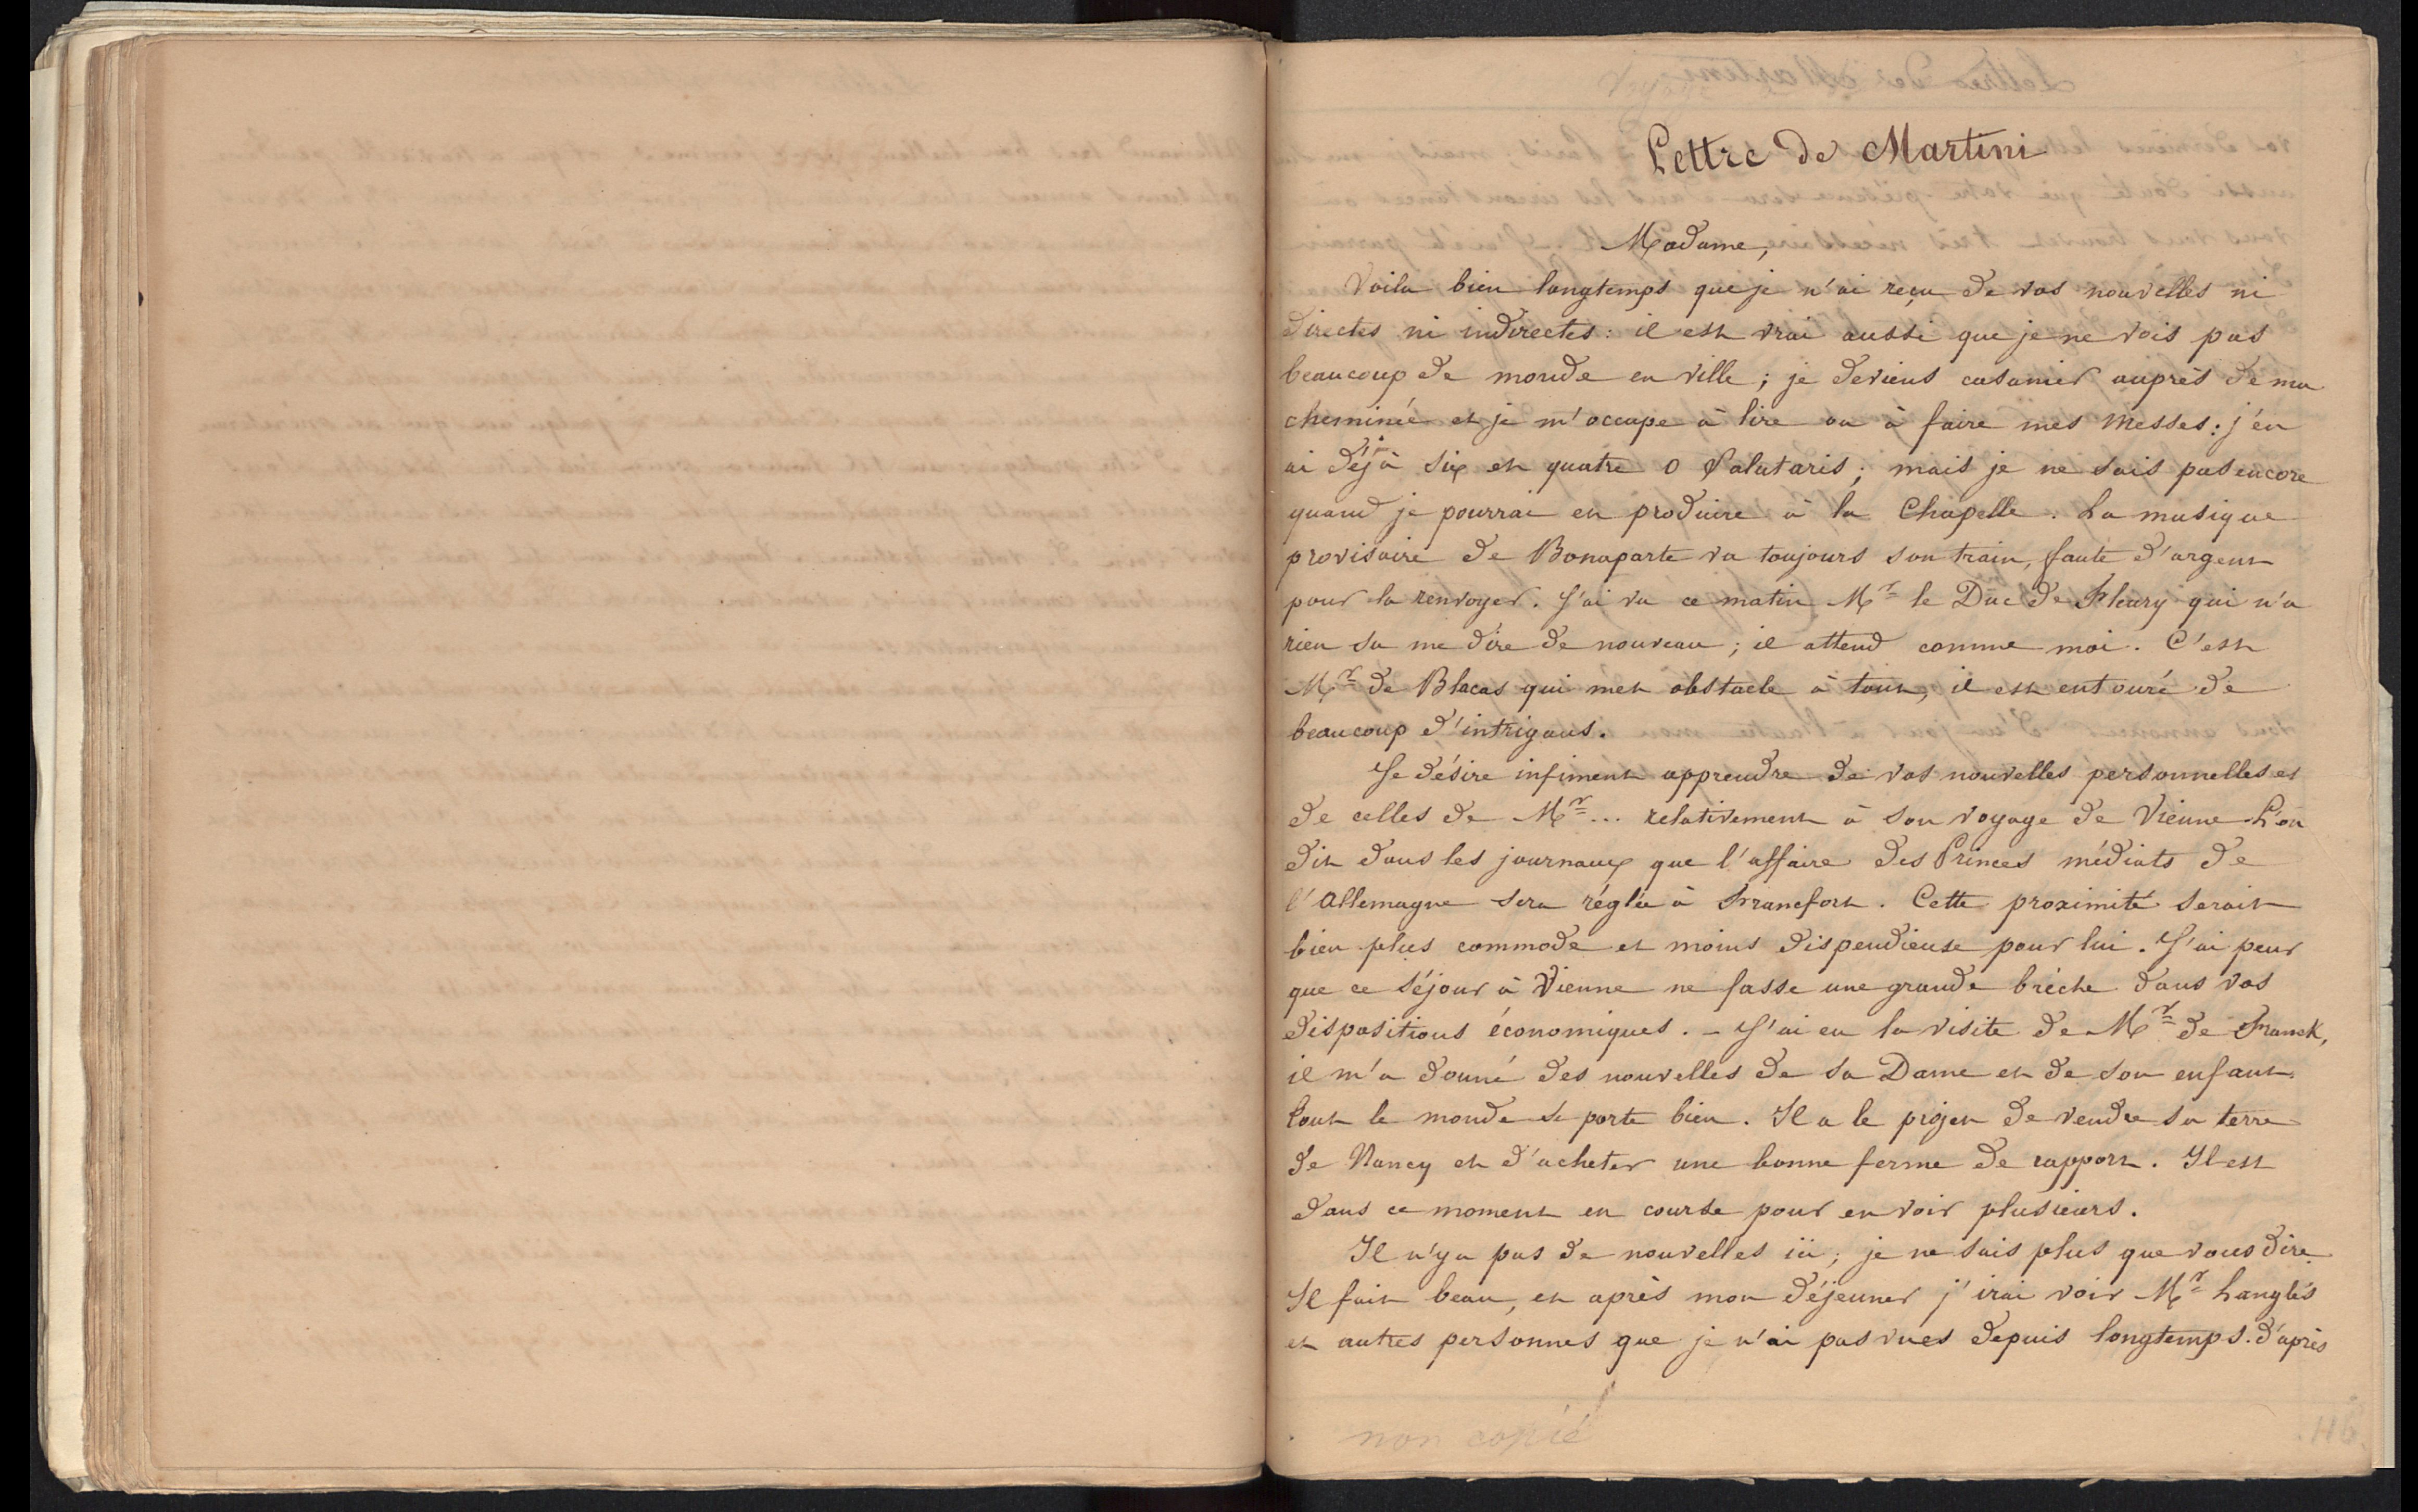 Lettre de Martini
Madame,
Voila bien longtemps que je n'ai reçu de vos nouvelles ni
directes ni indirectes: il est vrai aussi que je ne vois pas
beaucoup de monde en ville; je deviens casanier auprès de ma
cheminée et je m'occupe à lire ou à faire mes messes: j'en
ai déjà six et quatre O Salutaris; mais je ne sais pas encore
quand je pourrai en produire à la Chapelle. La musique
provisoire de Bonaparte va toujours son train, faute d'argent
pour la renvoyer. J'ai vu ce matin Mr le Duc de Fleury qui n'a
rien su me dire de nouveau; il attend comme moi. C'est
Mr de Blacas qui met obstacle à tout, il est entouré de
beaucoup d'intrigans.
Je désire infiment apprendre de vos nouvelles personnelles et
de celles de Mr... relativement à son voyage de Vienne L'on
dit dans les journaux que l'affaire des Princes médiats de
l'Allemagne sera réglée à Francfort. Cette proximité serait
bien plus commode et moins dispendieuse pour lui. J'ai peur
que ce séjour à Vienne ne fasse une grande brèche dans vos
dispositions économiques. - J'ai eu la visite de Mr de Franck,
il m'a donné des nouvelles de sa Dame et de son enfant.
Tout le monde se porte bien. Il a le projet de vendre sa terre
de Nancy et d'acheter une bonne ferme de rapport. Il est
dans ce moment en course pour en voir plusieurs.
Il n'y a pas de nouvelles ici; je ne sais plus que vous dire.
Il fait beau, et après mon déjeuner j'irai voir Mr Langlès
et autres personnes que je n'ai pas vues depuis longtemps. d'après
non copié